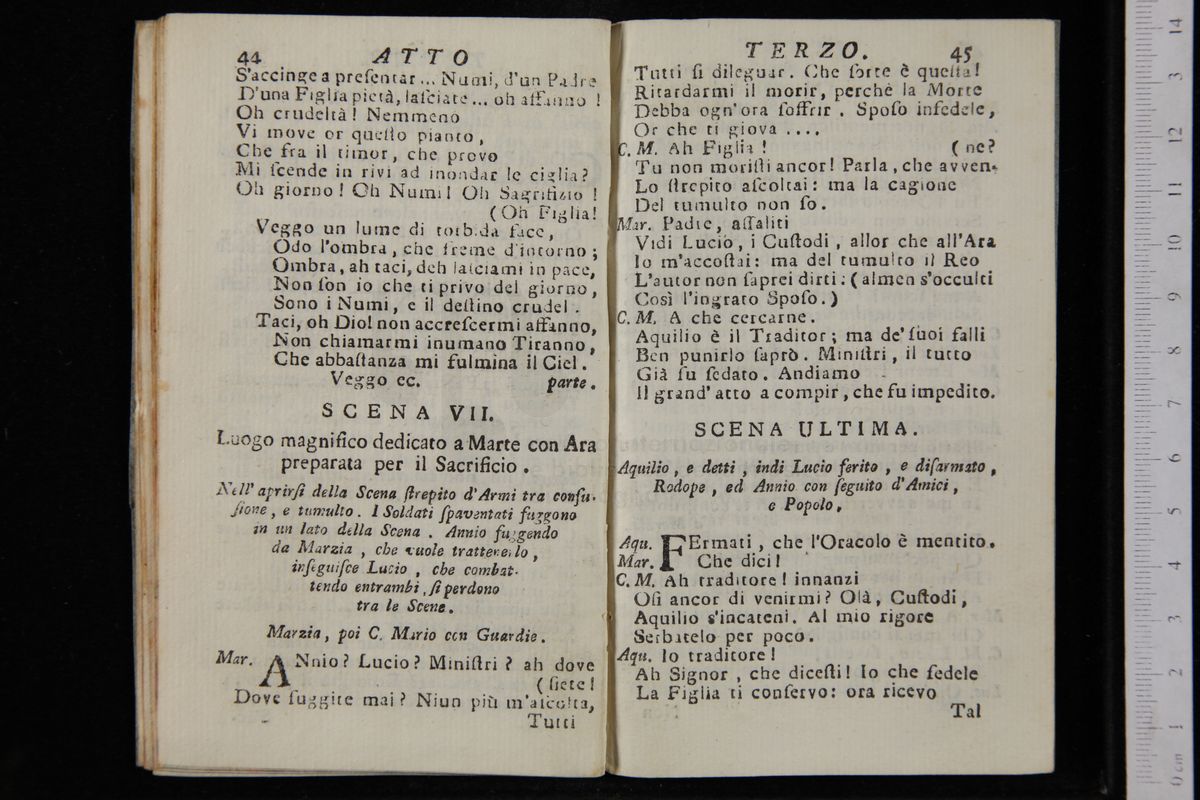 44 ATTO
S'accinge a preſentar ... Numi, d'un Padre
D'una Figlia pietà, laſciate ... oh affanno !
Oh crudeltà! Nemmeno
Vi move or queſto pianto,
Che fra il timor, che provo
Mi ſcende in rivi ad inondar le ciglia?
Oh giorno! Oh Numi! Oh Sagrifizio !
(Oh Figlia!
Veggo un lume di torbida face,
Odo l'ombra, che freme d'intorno ;
Ombra, ah taci, deh laſciami in pace,
Non ſon io che ti privo del giorno,
Sono i Numi, e il deſtino crudel.
Taci, oh Dio! non accreſcermi affanno,
Non chiamarmi inumano Tiranno,
Che abbaſtanza mi fulmina il Ciel.
Veggo ec. parte.
SCENA VII.
Luogo magnifico dedicato a Marte con Ara
preparata per il Sacrificio.
Nell' aprirſi della Scena ſtrepito d'Armi tra confu-
ſione, e tumulto. I Soldati ſpaventati fuggono
in un lato della Scena. Annio fuggendo
da Marzia, che vuole trattenerlo,
inſeguiſce Lucio, che combat-
tendo entrambi, ſi perdono
tra le Scene.
Marzia, poi C. Mario con Guardie.
Mar. ANnio? Lucio? Miniſtri? ah dove
(ſiete!
Dove fuggite mai? Niun più m'aſcolta,
Tutti
TERZO. 45
Tutti ſi dileguar. Che ſorte è queſta!
Ritardarmi il morir, perchè la Morte
Debba ogn'ora ſoffrir. Spoſo infedele,
Or che ti giova ....
C. M. Ah Figlia! (ne?
Tu non moriſti ancor! Parla, che avven-
Lo ſtrepito aſcoltai: ma la cagione
Del tumulto non ſo.
Mar. Padre, aſſaliti
Vidi Lucio, i Cuſtodi, allor che all'Ara
Io m'accoſtai: ma del tumulto il Reo
L'autor non ſaprei dirti: (almen s'occulti
Così l'ingrato Spoſo.)
C. M. A che cercarne.
Aquilio è il Traditor; ma de' ſuoi falli
Ben punirlo ſaprò. Miniſtri, il tutto
Già fu ſedato. Andiamo
Il grand' atto a compir, che fu impedito.
SCENA ULTIMA.
Aquilio, e detti, indi Lucio ferito, e diſarmato,
Rodope, ed Annio con ſeguito d'Amici,
e Popolo.
Aqu. FErmati, che l'Oracolo è mentito.
Mar. Che dici!
C. M. Ah traditore! innanzi
Oſi ancor di venirmi? Olà, Cuſtodi,
Aquilio s'incateni. Al mio rigore
Serbatelo per poco.
Aqu. Io traditore!
Ah Signor, che diceſti! Io che fedele
La Figlia ti conſervo: ora ricevo
Tal
14
13
12
11
10
9
8
7
6
5
4
3
2
1
0 cm